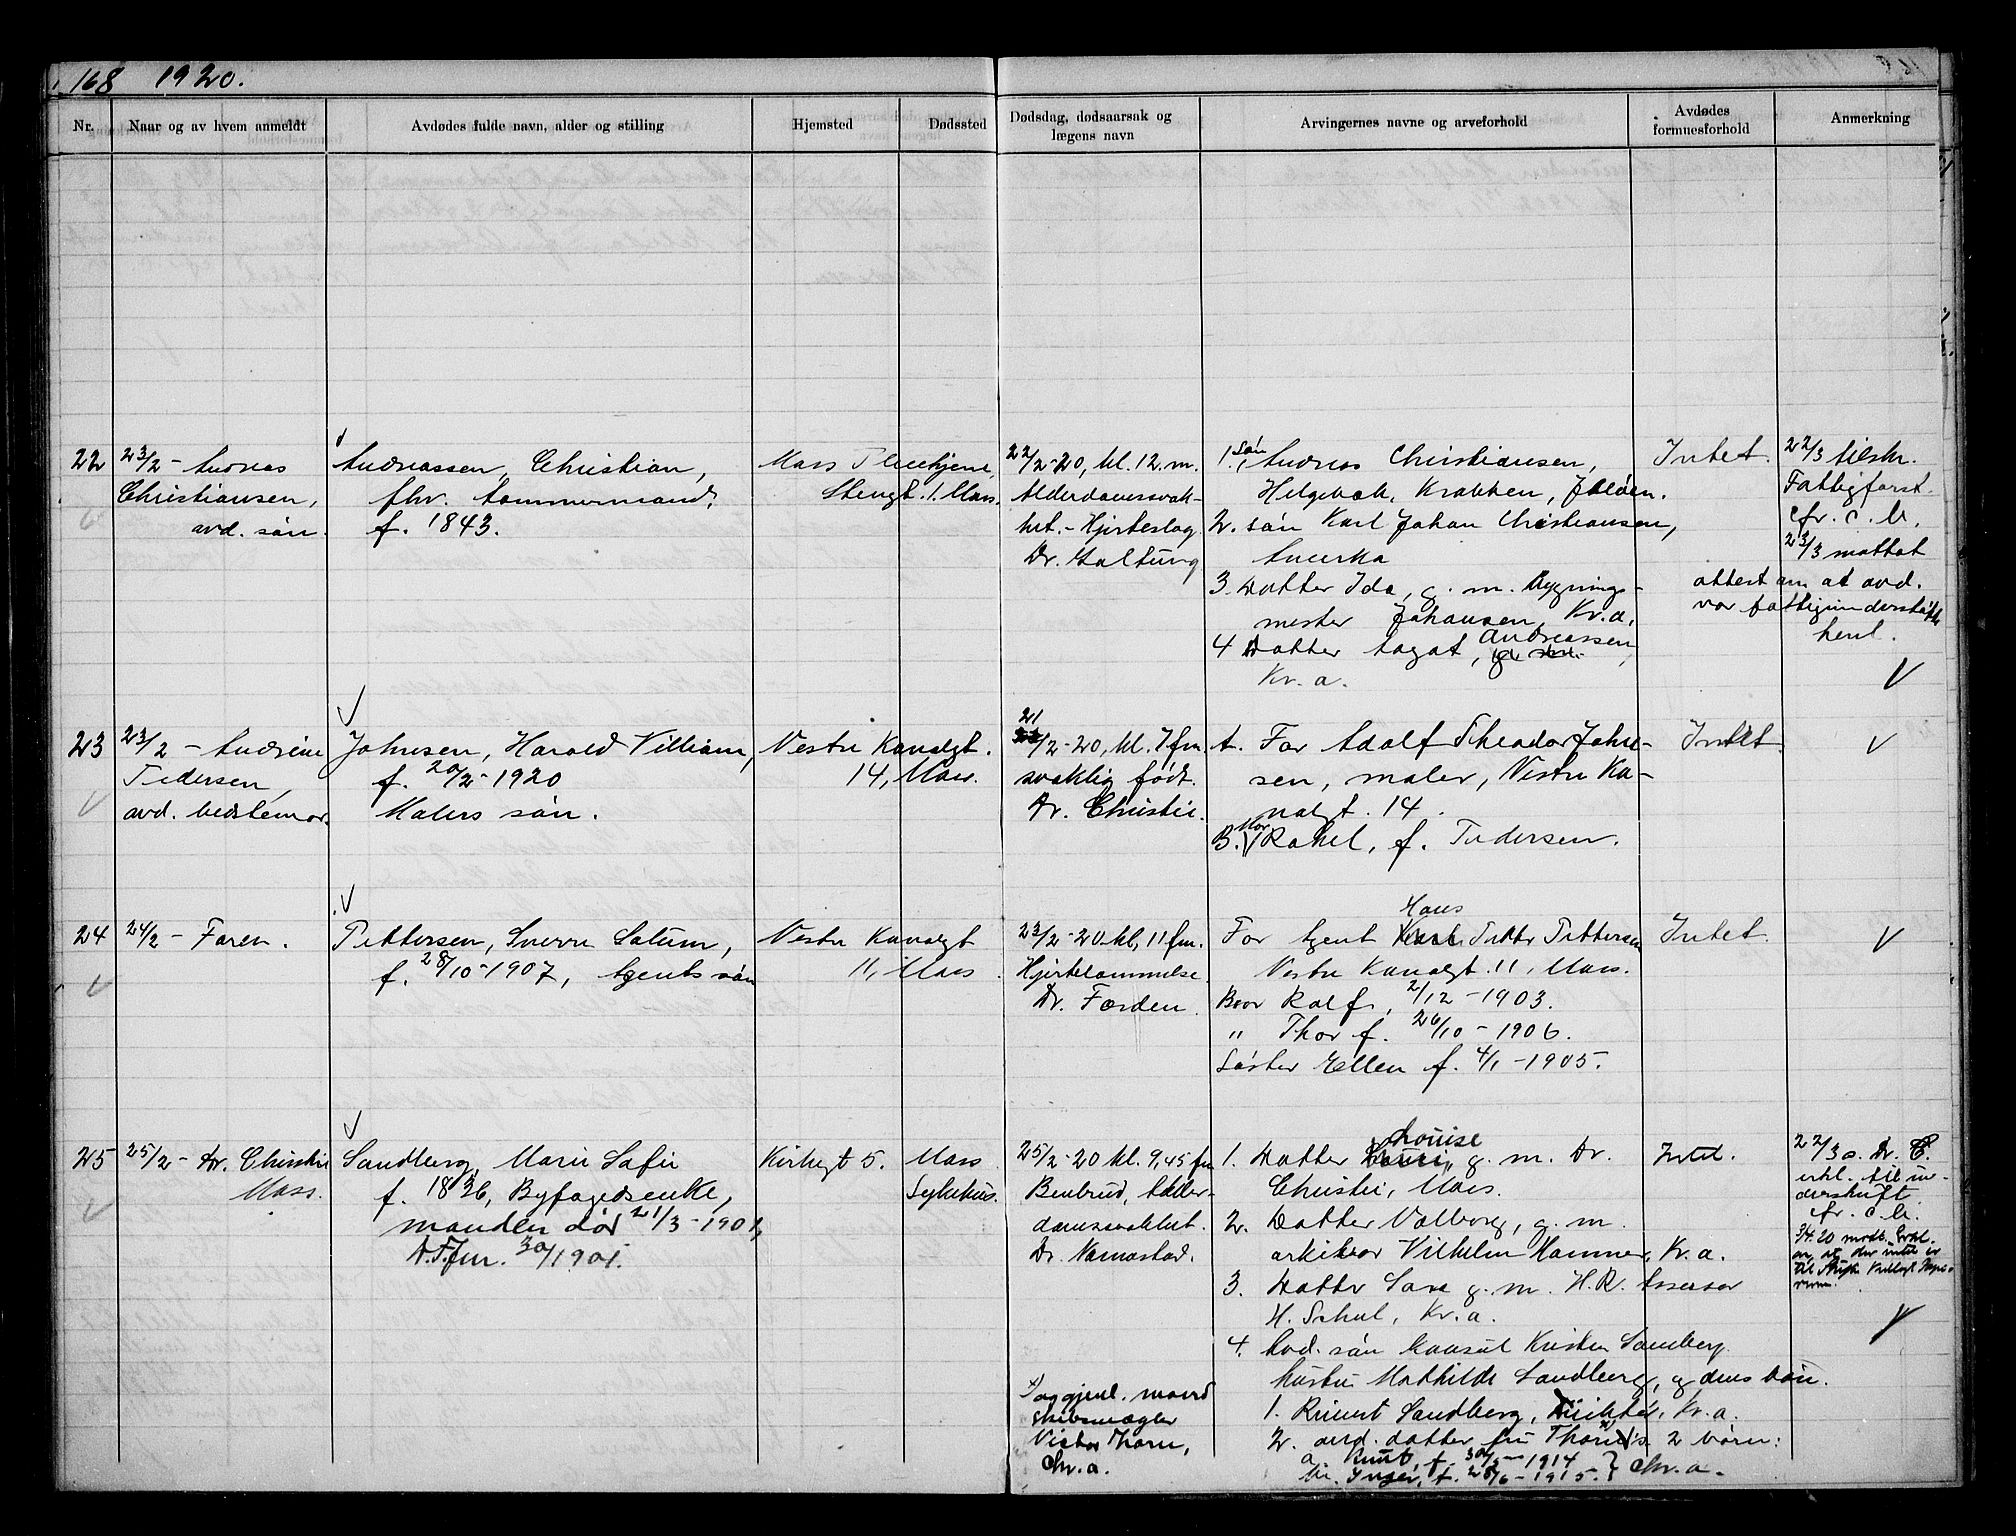 168 1920.
Nr.
Naar og av hvem anmeldt
Avdødes fulde navn, alder og stilling
Hjemsted
Dødssted
Dødsdag, dødsaarsak og
lægens navn
Arvingernes navne og arveforhold
Avdødes
formuesforhold
Anmerkning
22
23/2 - Andreas
Christiansen,
avd. søn.
Andreassen, Christian,
fhv. tømmermand,
f. 1843.
Moss Pleiehjem,
Stengt. 1. Moss.
22/2-20, kl. 12. m.
Alderdomssvak-
het. - Hjerteslag
Dr. Galtung
1. Søn, Andreas Christiansen,
Helgebok, Krokken, Jeløen.
2. søn Karl Johan Christiansen,
Amerka
3. Datter Ida, g. m. Bygnings-
mester Johansen, Kr.a.
4 Datter Aagot, Andreassen,
Kr.a.
Intet.
22/3 tilskr.
Fattigforst.
cfr. c. b.
23/3 mottat
attest om at avd.
var fattigunderstøttet
henl.
23
23/2 - Andrine
Pedersen,
avd. bedstemor.
Johnsen, Harold Villiam,
f. 20/2 - 1920
Malers søn.
Vestre Kanalgt.
14, Moss.
21/2-20, kl. 7 fm.
svaklig født.
Dr. Christie.
A. Far Adolf Theodor John-
sen, maler, Vestre Ka-
nalgt. 14.
B. Mor Rakel, f. Pedersen.
Intet
24
24/2 - Faren.
Pettersen, Sverre Solum,
f. 28/10 - 1907, Agents søn
Vestre Kanalgt
11, Moss
23/2-20 kl. 11 fm.
Hjertelammelse.
Dr. Førden.
Far Agent Hans Petter Pettersen
Vestre Kanalgt. 11, Moss.
Bror Rolf, 2/12 - 1903.
" Thor f. 26/10 - 1906.
Søster Ellen f. 4/1 - 1905.
Intet.
25
25/2 - Dr. Christie
Moss.
Sandberg, Marie Sofie
f. 1836, Byfogedsenke,
manden død 21/3 - 1901,
Kirkegt 5.
Moss
Sykehus.
25/2-20 kl. 9,45 fm
Benbrud, Alder-
domssvakhet.
Dr. Varnostad.
1. Datter Louise, g. m. Dr.
Christie, Moss.
2. Datter Valborg, g. m.
arkitekt Vilhelm Hammer, Kr.a.
3. Datter Sara g. m. H.R. Assessor
H. Schul, Kr.a.
4. Avd. søn konsul Kristen Sandberg.
hustru Mathilde Sandberg, og dens børn.
1. Rivert Sandberg, Kr.a.
2. avd. datter fru Thorn's 2 børn:
a. Knut, f. 1914
b. Inger, f. 28/6 - 1915. } Chr.a.
Intet.
22/3 s. Dr. C.
erkl. til un-
derskrift.
cfr. c. b.
Oppgjevl. mand
skibsmægler
Victor Thorn,
Chr.a.